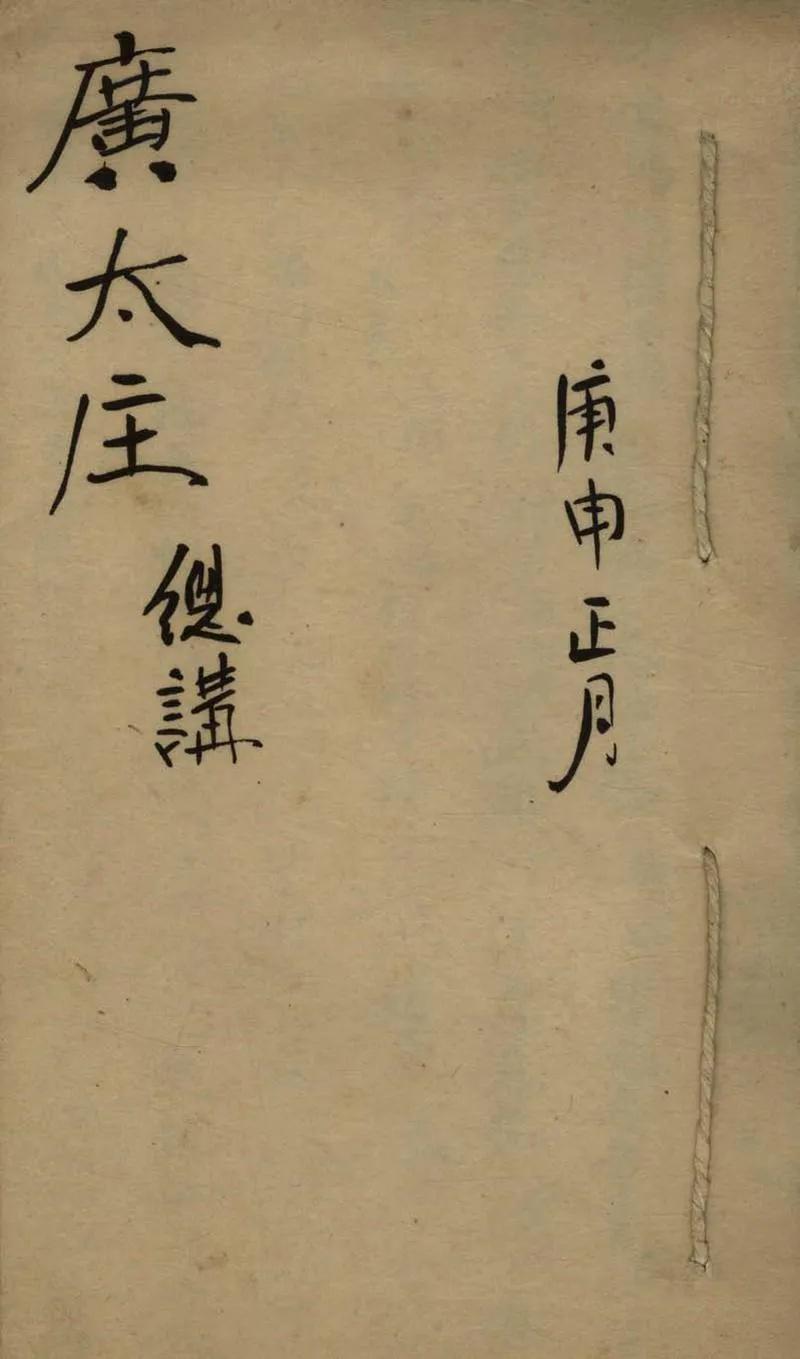 庚申正月
廣太庄總講